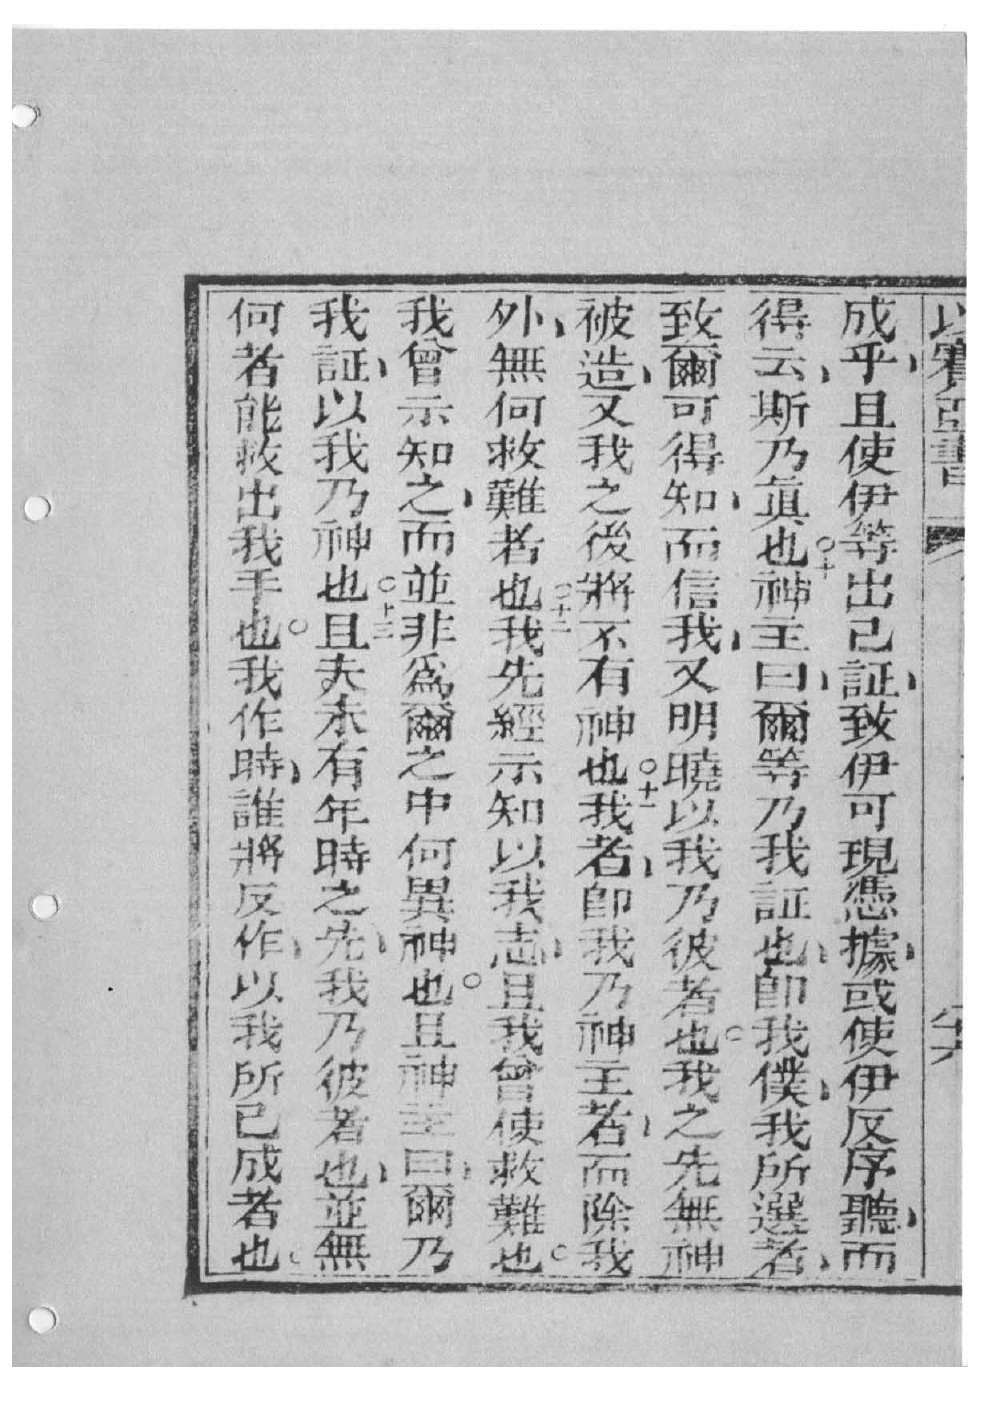 以賽亞書
成乎、且使伊等出己証、致伊可現憑據、或使伊反序聽、而
得云、斯乃眞也○十神主曰、爾等乃我証也、卽我僕、我所選者、
致爾可得知、而信我、又明曉以我乃彼者也○我之先無神
被造、又我之後將不有神也○十一我者、卽我乃神主者、而除我
外、無何救難者也○十二我先經示知以我志、且我曾使救難也○
我曾示知之、而並非爲爾之中何異神也○且神主曰、爾乃
我証、以我乃神也○十三且夫未有年時之先、我乃彼者也、並無
何者能救出我手也○我作時、誰將反作、以我所已成者也○